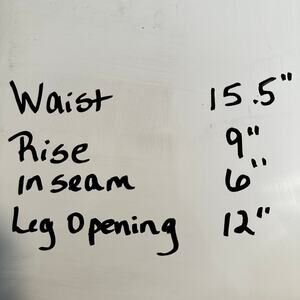 Waist 15.5"
Rise 9"
inseam 6"
Leg Opening 12"